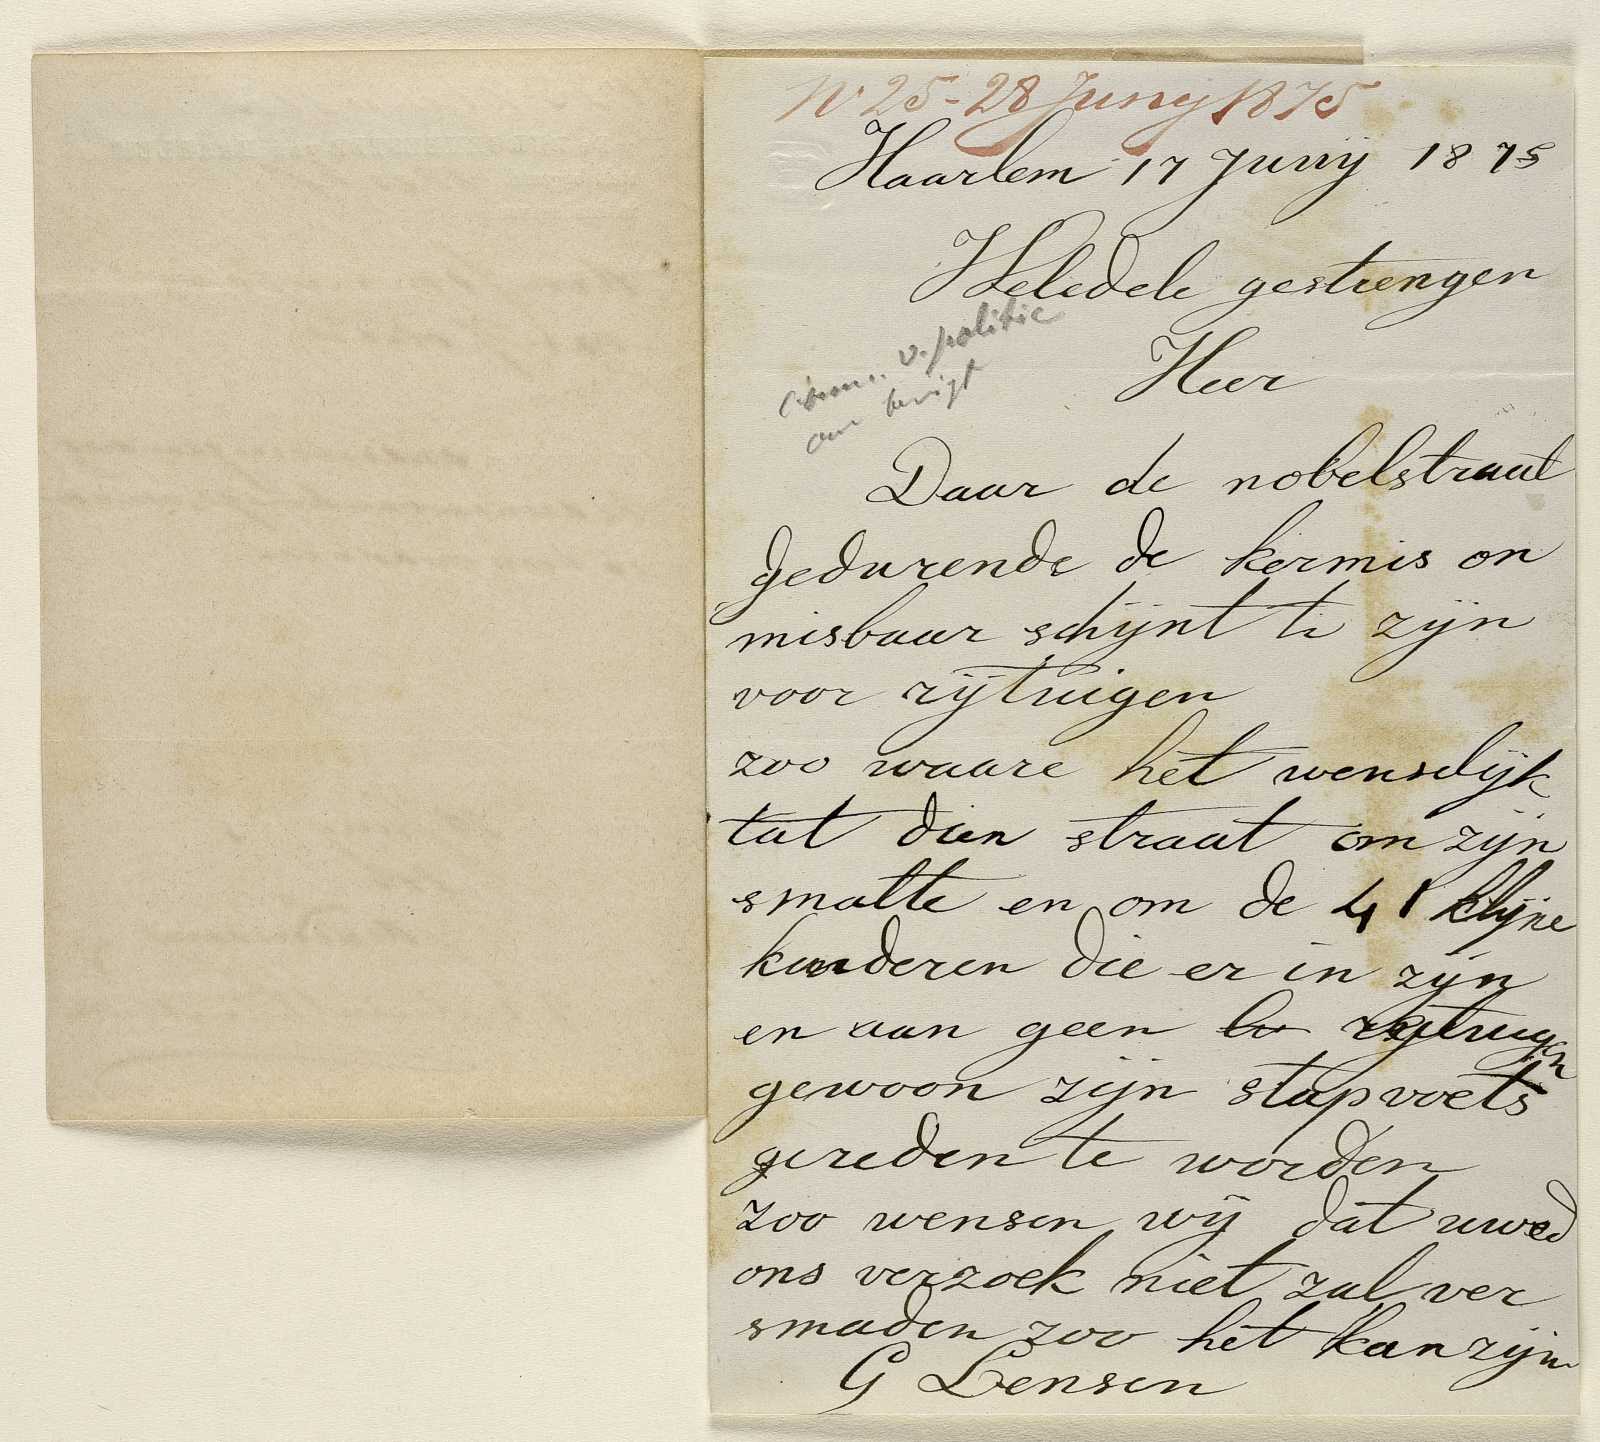 No 25 - 28 Juny 1875
Haarlem 17 Junij 1875
Weledele gestrengen
Comm.. v. politie
om berigt
Heer
Daar de nobelstraat
gedurende de kermis on
misbaar schijnt te zijn
voor rijtuigen
zoo waare het wenselijk
tat dien straat om zijn
smalte en om de 41 klijne
kinderen die er in zijn
en aan geen rijtuigen
gewoon zijn stapvoets
gereden te worden
zoo wensen wij dat uwed
ons verzoek niet zal ver
smaden zoo het kan zijn
G Lensen